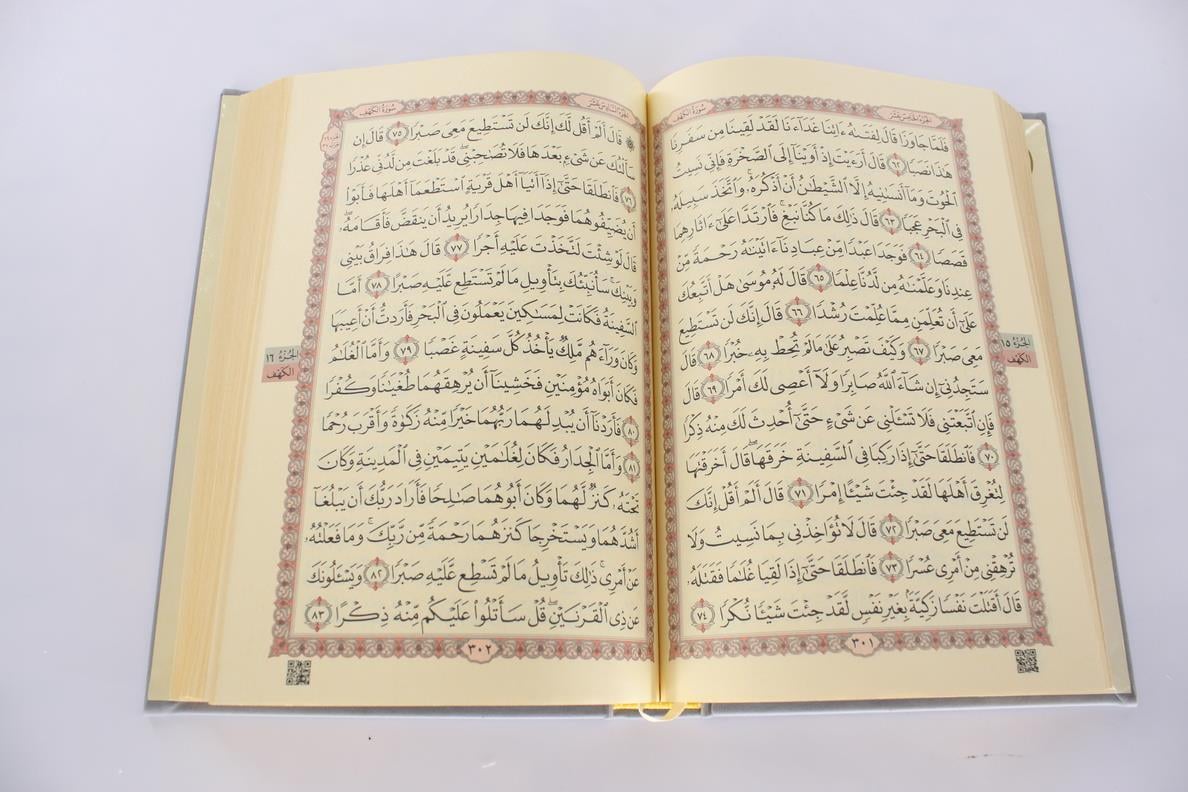 سُورَةُ الكَهۡفِ
الجُزءُ الخَامِسَ عَشَرَ
فَلَمَّا جَاوَزَا قَالَ لِفَتَىٰهُ ءَاتِنَا غَدَآءَنَا لَقَدۡ لَقِينَا مِن سَفَرِنَا
هَٰذَا نَصَبٗا ٦٢ قَالَ أَرَءَيۡتَ إِذۡ أَوَيۡنَآ إِلَى ٱلصَّخۡرَةِ فَإِنِّي نَسِيتُ
ٱلۡحُوتَ وَمَآ أَنسَىٰنِيهُ إِلَّا ٱلشَّيۡطَٰنُ أَنۡ أَذۡكُرَهُۥۚ وَٱتَّخَذَ سَبِيلَهُۥ
فِي ٱلۡبَحۡرِ عَجَبٗا ٦٣ قَالَ ذَٰلِكَ مَا كُنَّا نَبۡغِۚ فَٱرۡتَدَّا عَلَىٰٓ ءَاثَارِهِمَا
قَصَصٗا ٦٤ فَوَجَدَا عَبۡدٗا مِّنۡ عِبَادِنَآ ءَاتَيۡنَٰهُ رَحۡمَةٗ مِّنۡ
عِندِنَا وَعَلَّمۡنَٰهُ مِن لَّدُنَّا عِلۡمٗا ٦٥ قَالَ لَهُۥ مُوسَىٰ هَلۡ أَتَّبِعُكَ
عَلَىٰٓ أَن تُعَلِّمَنِ مِمَّا عُلِّمۡتَ رُشۡدٗا ٦٦ قَالَ إِنَّكَ لَن تَسۡتَطِيعَ
مَعِيَ صَبۡرٗا ٦٧ وَكَيۡفَ تَصۡبِرُ عَلَىٰ مَا لَمۡ تُحِطۡ بِهِۦ خُبۡرٗا ٦٨ قَالَ
سَتَجِدُنِيٓ إِن شَآءَ ٱللَّهُ صَابِرٗا وَلَآ أَعۡصِي لَكَ أَمۡرٗا ٦٩ قَالَ
فَإِنِ ٱتَّبَعۡتَنِي فَلَا تَسۡـَٔلۡنِي عَن شَيۡءٍ حَتَّىٰٓ أُحۡدِثَ لَكَ مِنۡهُ ذِكۡرٗا
٧٠ فَٱنطَلَقَا حَتَّىٰٓ إِذَا رَكِبَا فِي ٱلسَّفِينَةِ خَرَقَهَاۖ قَالَ أَخَرَقۡتَهَا
لِتُغۡرِقَ أَهۡلَهَا لَقَدۡ جِئۡتَ شَيۡـًٔا إِمۡرٗا ٧١ قَالَ أَلَمۡ أَقُلۡ إِنَّكَ
لَن تَسۡتَطِيعَ مَعِيَ صَبۡرٗا ٧٢ قَالَ لَا تُؤَاخِذۡنِي بِمَا نَسِيتُ وَلَا
تُرۡهِقۡنِي مِنۡ أَمۡرِي عُسۡرٗا ٧٣ فَٱنطَلَقَا حَتَّىٰٓ إِذَا لَقِيَا غُلَٰمٗا فَقَتَلَهُۥ
قَالَ أَقَتَلۡتَ نَفۡسٗا زَكِيَّةَۢ بِغَيۡرِ نَفۡسٖ لَّقَدۡ جِئۡتَ شَيۡـٔٗا نُّكۡرٗا ٧٤
٣٠١
الجُزءُ ١٥
الكهف
سُورَةُ الكَهۡفِ
الجُزءُ السَّادِسَ عَشَرَ
۞ قَالَ أَلَمۡ أَقُل لَّكَ إِنَّكَ لَن تَسۡتَطِيعَ مَعِيَ صَبۡرٗا ٧٥ قَالَ إِن
سَأَلۡتُكَ عَن شَيۡءِۭ بَعۡدَهَا فَلَا تُصَٰحِبۡنِيۖ قَدۡ بَلَغۡتَ مِن لَّدُنِّي عُذۡرٗا
٧٦ فَٱنطَلَقَا حَتَّىٰٓ إِذَآ أَتَيَآ أَهۡلَ قَرۡيَةٍ ٱسۡتَطۡعَمَآ أَهۡلَهَا فَأَبَوۡاْ
أَن يُضَيِّفُوهُمَا فَوَجَدَا فِيهَا جِدَارٗا يُرِيدُ أَن يَنقَضَّ فَأَقَامَهُۥۖ
قَالَ لَوۡ شِئۡتَ لَتَّخَذۡتَ عَلَيۡهِ أَجۡرٗا ٧٧ قَالَ هَٰذَا فِرَاقُ بَيۡنِي
وَبَيۡنِكَۚ سَأُنَبِّئُكَ بِتَأۡوِيلِ مَا لَمۡ تَسۡتَطِع عَّلَيۡهِ صَبۡرًا ٧٨ أَمَّا
ٱلسَّفِينَةُ فَكَانَتۡ لِمَسَٰكِينَ يَعۡمَلُونَ فِي ٱلۡبَحۡرِ فَأَرَدتُّ أَنۡ أَعِيبَهَا
وَكَانَ وَرَآءَهُم مَّلِكٞ يَأۡخُذُ كُلَّ سَفِينَةٍ غَصۡبٗا ٧٩ وَأَمَّا ٱلۡغُلَٰمُ
فَكَانَ أَبَوَاهُ مُؤۡمِنَيۡنِ فَخَشِينَآ أَن يُرۡهِقَهُمَا طُغۡيَٰنٗا وَكُفۡرٗا
٨٠ فَأَرَدۡنَآ أَن يُبۡدِلَهُمَا رَبُّهُمَا خَيۡرٗا مِّنۡهُ زَكَوٰةٗ وَأَقۡرَبَ رُحۡمٗا
٨١ وَأَمَّا ٱلۡجِدَارُ فَكَانَ لِغُلَٰمَيۡنِ يَتِيمَيۡنِ فِي ٱلۡمَدِينَةِ وَكَانَ
تَحۡتَهُۥ كَنزٞ لَّهُمَا وَكَانَ أَبُوهُمَا صَٰلِحٗا فَأَرَادَ رَبُّكَ أَن يَبۡلُغَآ
أَشُدَّهُمَا وَيَسۡتَخۡرِجَا كَنزَهُمَا رَحۡمَةٗ مِّن رَّبِّكَۚ وَمَا فَعَلۡتُهُۥ
عَنۡ أَمۡرِيۚ ذَٰلِكَ تَأۡوِيلُ مَا لَمۡ تَسۡطِع عَّلَيۡهِ صَبۡرٗا ٨٢ وَيَسۡـَٔلُونَكَ
عَن ذِي ٱلۡقَرۡنَيۡنِۖ قُلۡ سَأَتۡلُواْ عَلَيۡكُم مِّنۡهُ ذِكۡرًا ٨٣
٣٠٢
الجُزءُ ١٦
الكهف